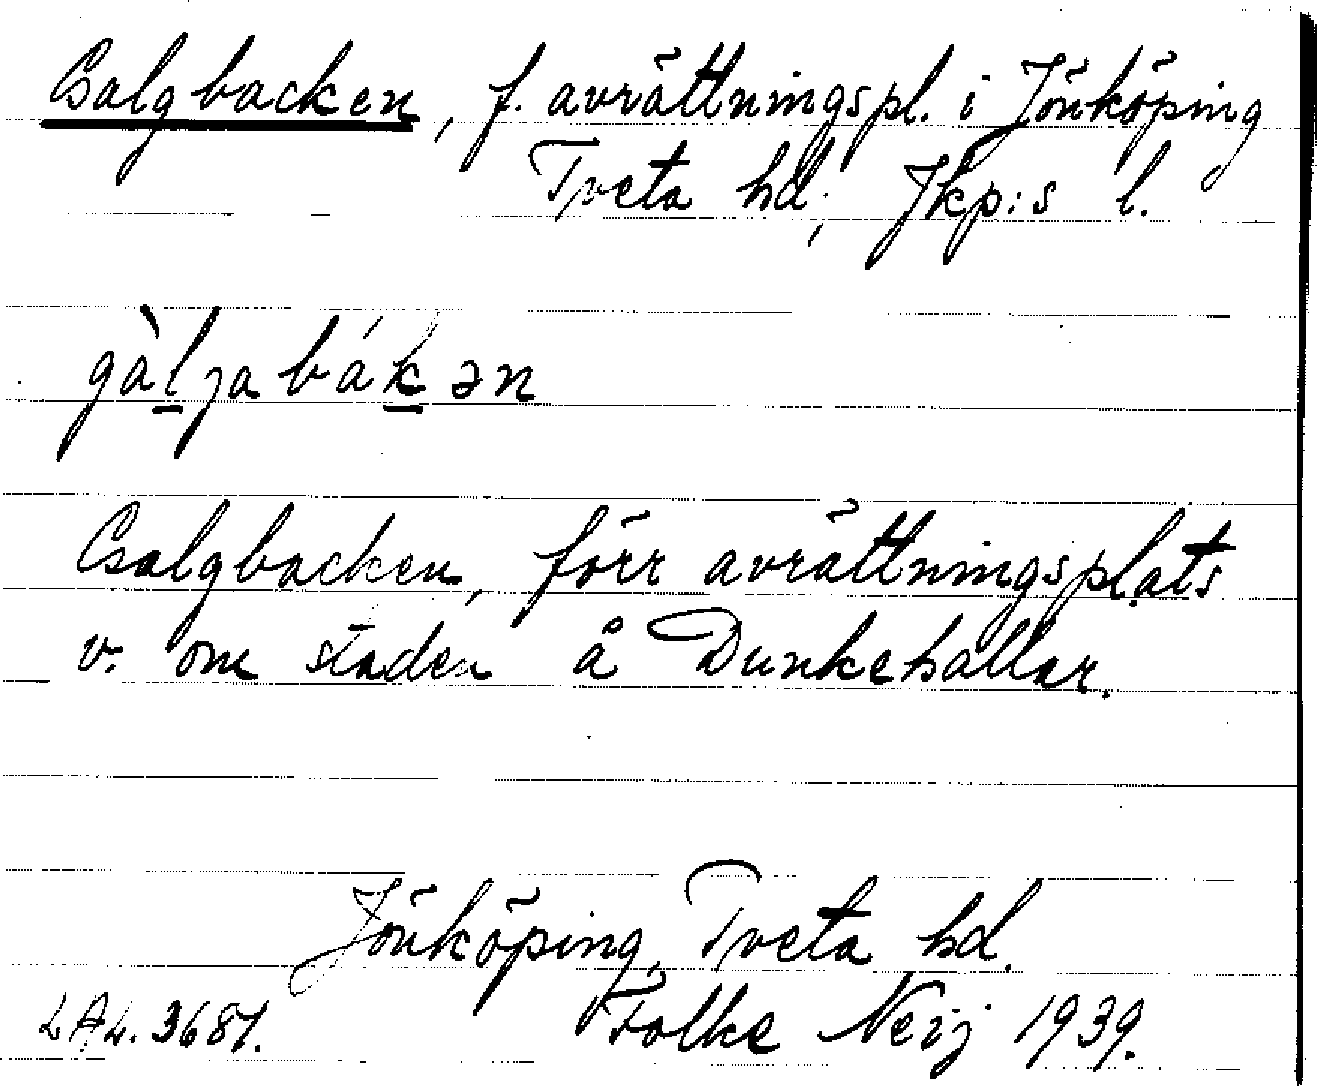 Galgbacken, f. avrättningspl. i Jönköping
Tveta hd, Jkp:s l.
gàljabákən
Galgbacken, förr avrättningsplats
v. om staden å Dunkehallar.
Jönköping, Tveta hd.
LAL. 3687. Folke Neij 1939.